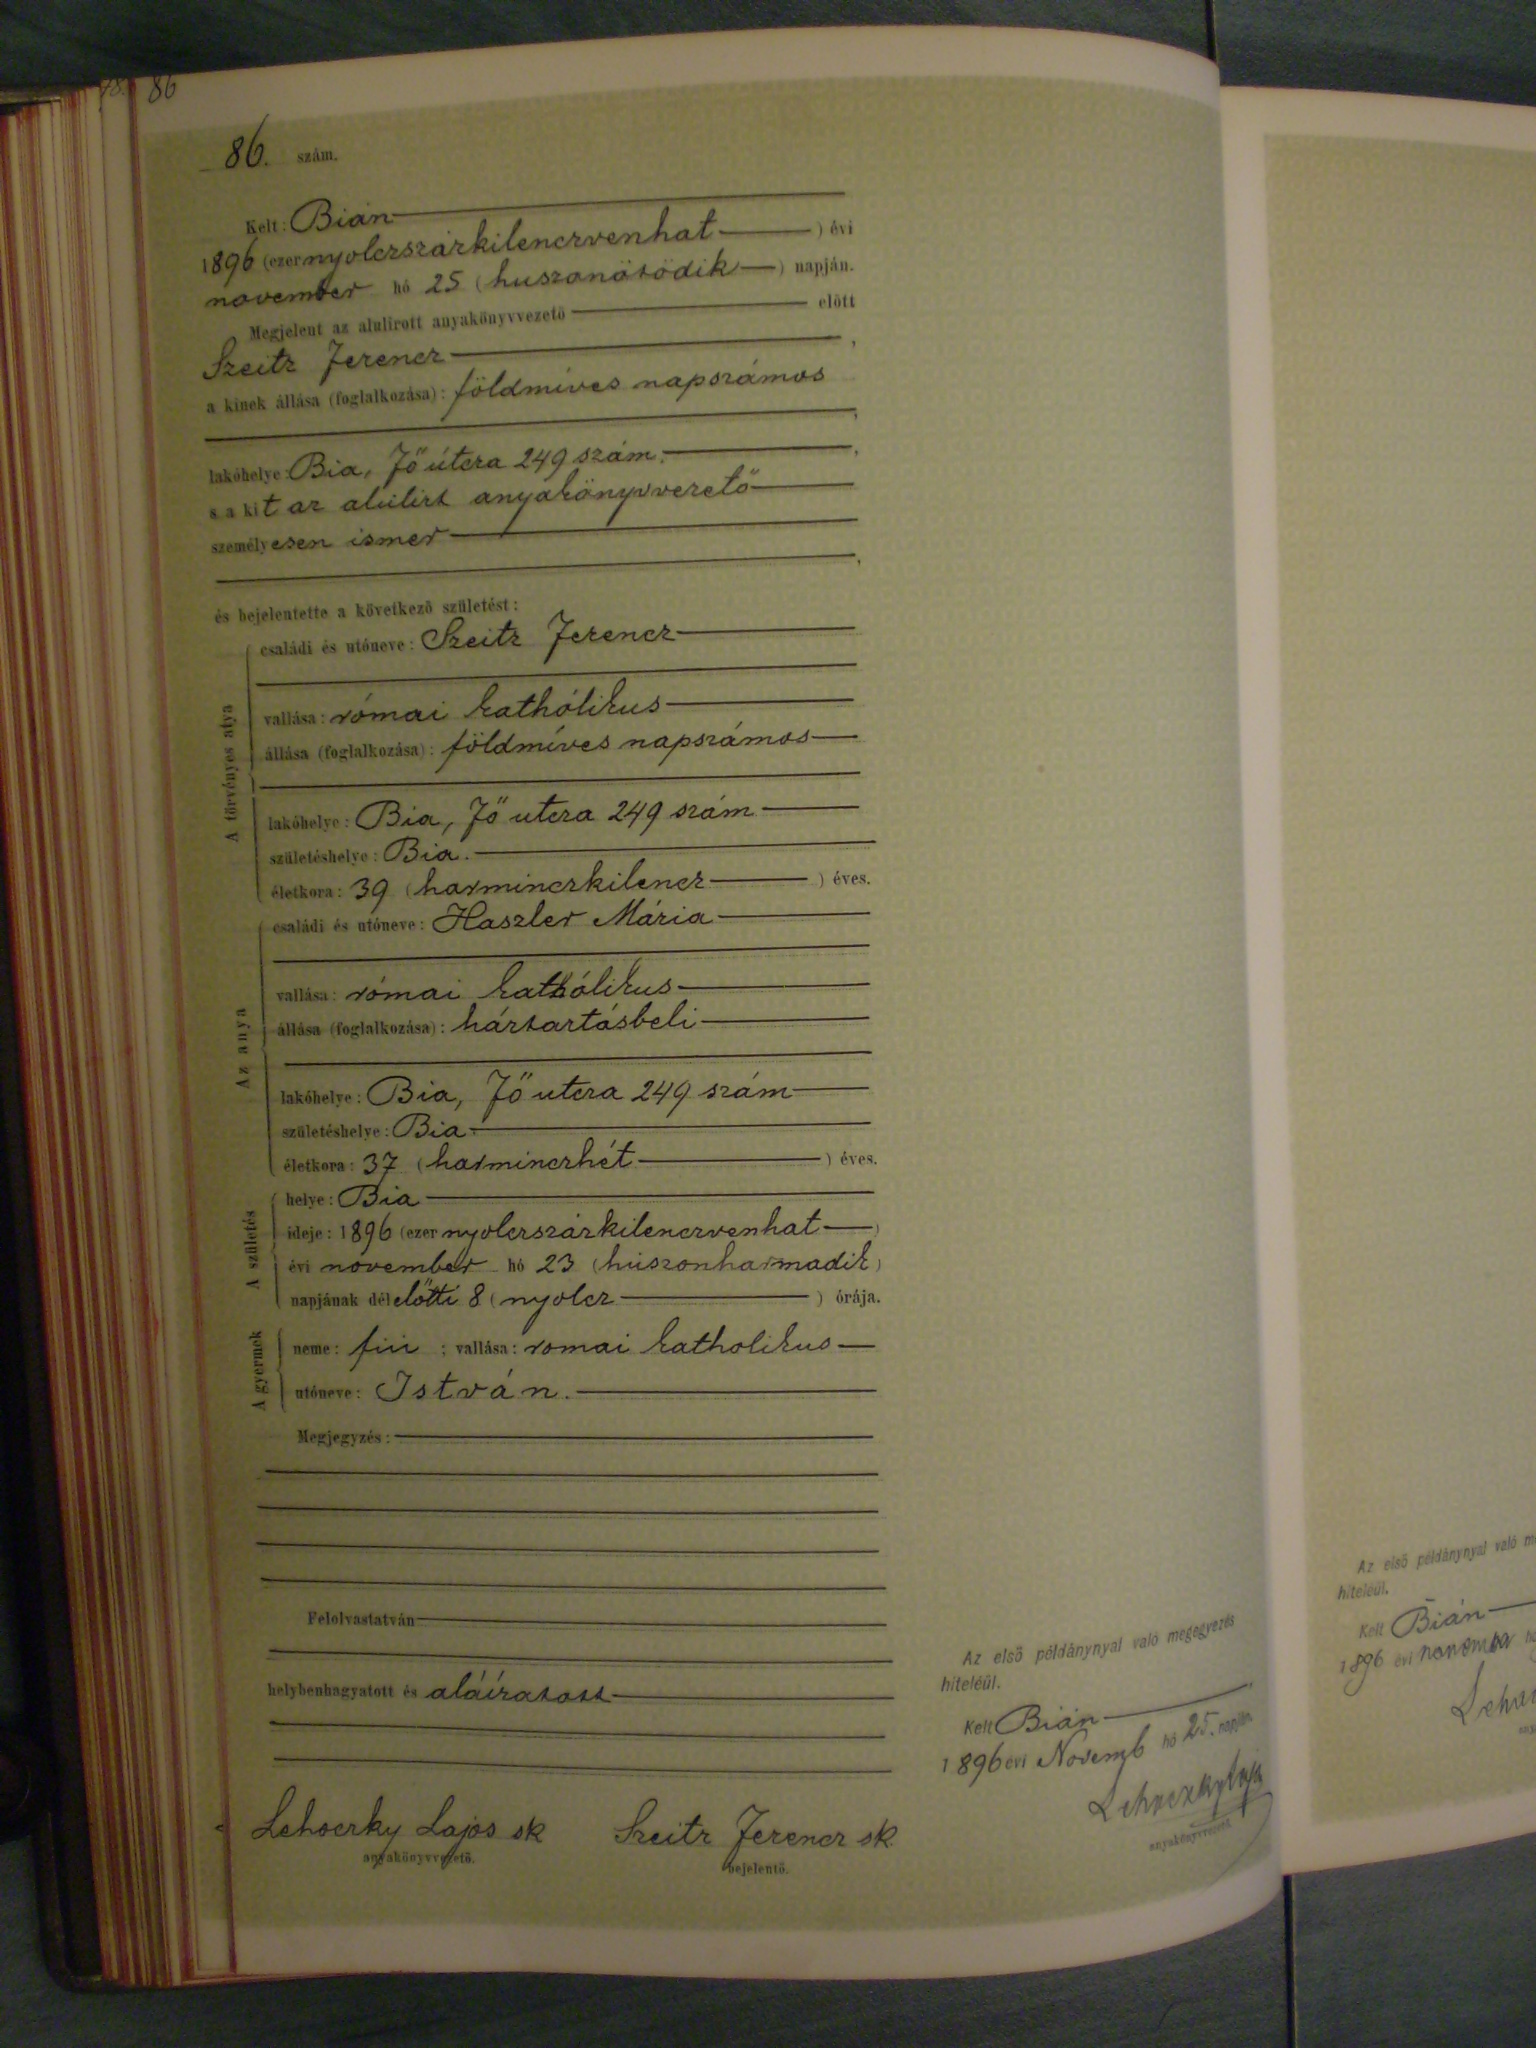 86
86. szám.
Kelt: Bián
1896 (ezer nyolczszázkilenczvenhat) évi
november hó 25 (huszonötödik) napján.
Megjelent az alulirott anyakönyvvezető előtt
Szeitz Ferencz,
a kinek állása (foglalkozása): földmíves napszámos,
lakóhelye: Bia, Fő útcza 249 szám.,
s a kit az alúlirt anyakönyvvezető
személyesen ismer,
és bejelentette a következő születést:
A törvényes atya
családi és utóneve: Szeitz Ferencz
vallása: római kathólikus
állása (foglalkozása): földmíves napszámos
lakóhelye: Bia, Fő utcza 249 szám
születéshelye: Bia.
életkora: 39 (harminczkilencz) éves.
Az anya
családi és utóneve: Haszler Mária
vallása: római kathólikus
állása (foglalkozása): háztartásbeli
lakóhelye: Bia, Fő utcza 249 szám
születéshelye: Bia.
életkora: 37 (harminczhét) éves.
A születés
helye: Bia
ideje: 1896 (ezer nyolczszázkilenczvenhat)
évi november hó 23 (húszonharmadik)
napjának délelőtti 8 (nyolcz) órája.
A gyermek
neme: fiú; vallása: romai katholikus
utóneve: István.
Megjegyzés:
Felolvastatván
helybenhagyatott és aláíratott
Lehoczky Lajos sk
anyakönyvvezető.
Szeitz Ferencz sk
bejelentő.
Az első példánynyal való megegyezés
hiteléül.
Kelt Bián
1896 évi Novemb hó 25. napján.
Lehoczky Lajos
anyakönyvvezető
Az első példánynyal való
hiteléül.
Kelt Bián
1896 évi november